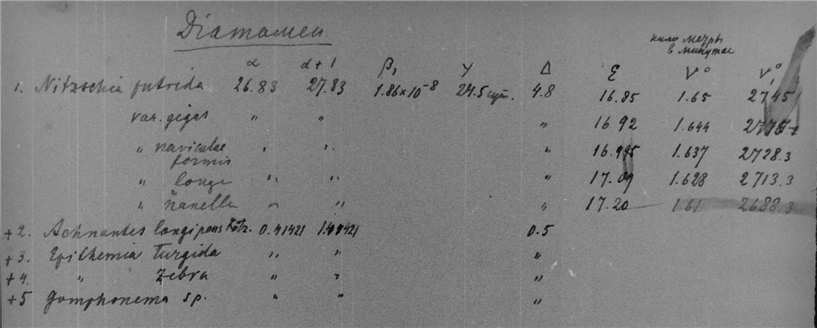 Диатомеи
α α+1 β₁ γ Δ ε V° V₁°
1. Nitzschia putrida 26.83 27.83 1.86×10⁻⁸ 24.5 4.8 16.85 1.65 2745
var. gigas " " " 16.92 1.644
" naviculae formis " " " 16.995 1.637 2728.3
" longa " " " 17.09 1.628 2713.3
" nanella " " " 17.20 1.61 2688.3
+2. Achnantes longipens Kütz. 0.41421 1.41421 0.5
+3. Epithemia turgida " " "
+4. " Zebra " " "
+5 Gomphonema sp. " " "